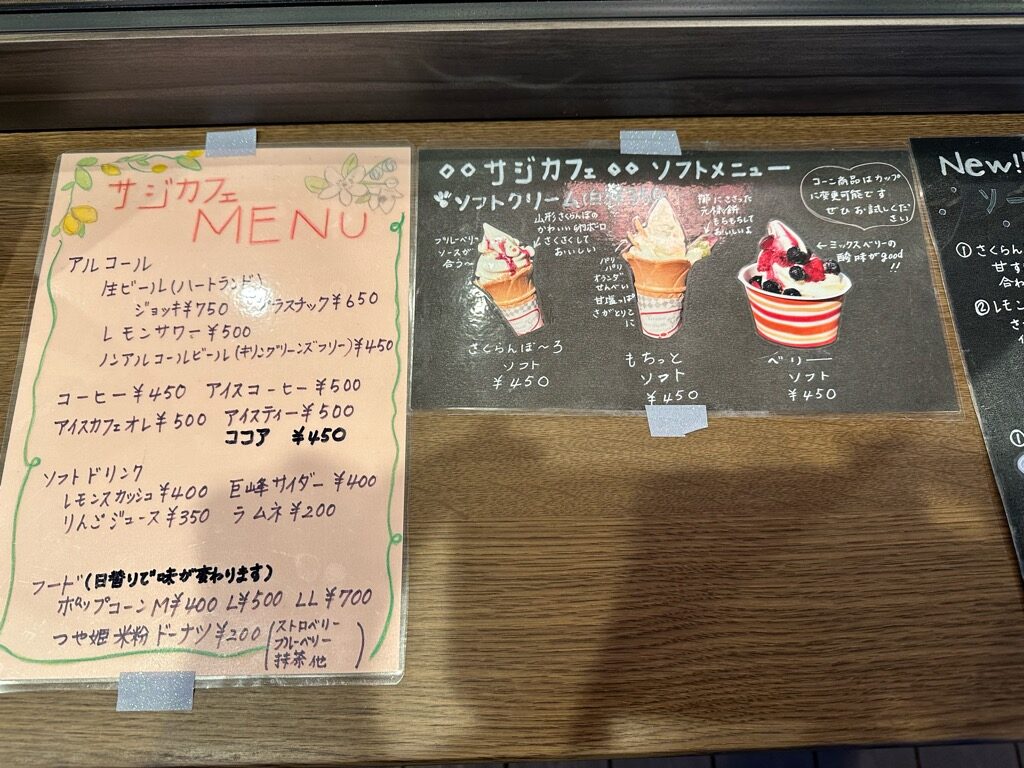 サジカフェ
MENU
アルコール
生ビール(ハートランド)
ジョッキ¥750 グラスナック¥650
レモンサワー¥500
ノンアルコールビール(キリングリーンズフリー)¥450
コーヒー¥450 アイスコーヒー¥500
アイスカフェオレ¥500 アイスティー¥500
ココア ¥450
ソフトドリンク
レモンスカッシュ¥400 巨峰サイダー¥400
りんごジュース¥350 ラムネ¥200
フード(日替りで味が変わります)
ポップコーンM¥400 L¥500 LL¥700
つや姫 米粉 ドーナツ¥200
(ストロベリー
ブルーベリー
抹茶 他)
サジカフェ ソフトメニュー
ソフトクリーム
コーン商品はカップ
に変更可能です
ぜひお試しくださ
い
ブルーベリー
ソースが
合う〜
山形さくらんぼの
かわいい
さくさくして
おいしい
もちもちして
おいしいよ
パリ
パリ
オランダ
せんべい
甘塩っぱ
さがとりこ
に
←ミックスベリーの
酸味がgood
!!
さくらんぼ〜ろ
ソフト
¥450
もちっと
ソフト
¥450
ベリー
ソフト
¥450
New!!
ソー
① さくらん
甘す
合わ
② レモン
さ
①